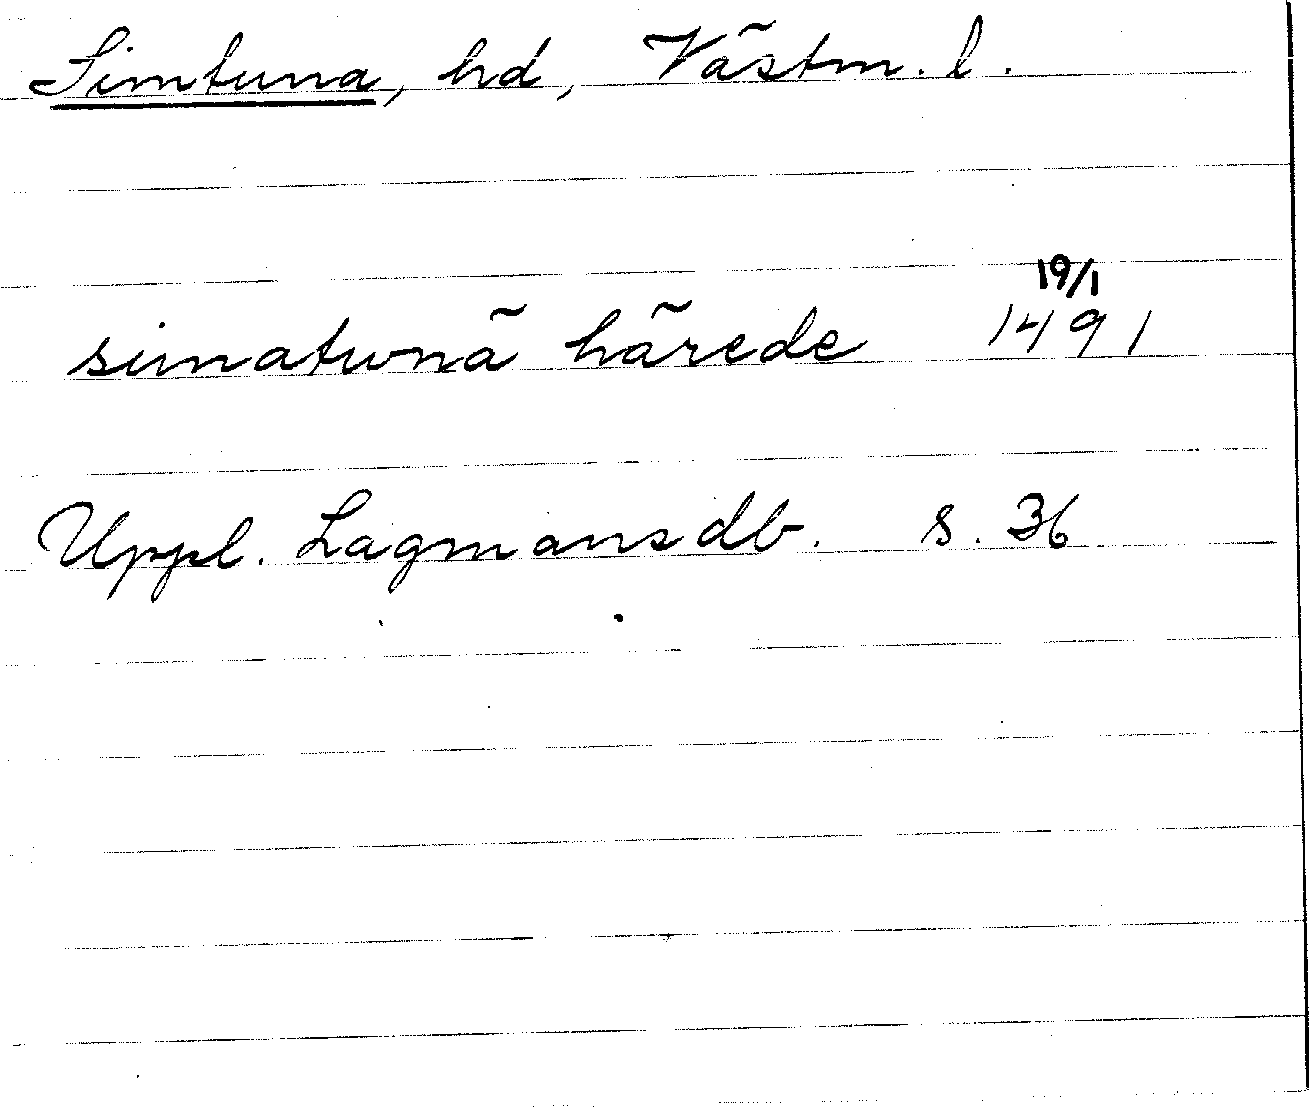 Simtuna, hd, Västm. l.
19/1
simatunä härede 1491
Uppl. Lagmansdb. s. 36